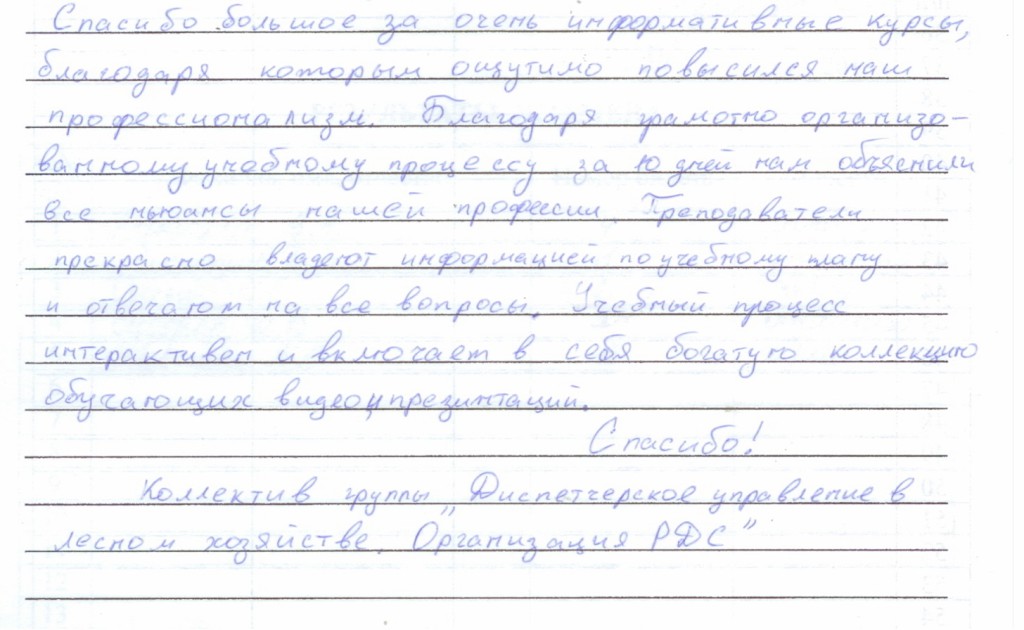 Спасибо большое за очень информативные курсы,
благодаря которым ощутимо повысился наш
профессионализм. Благодаря грамотно организо-
ванному учебному процессу за 10 дней нам объяснили
все ньюансы нашей профессии. Преподаватели
прекрасно владеют информацией по учебному плану
и отвечают на все вопросы. Учебный процесс
интерактивен и включает в себя богатую коллекцию
обучающих видео и презинтаций.
Спасибо!
Коллектив группы „Диспетчерское управление в
лесном хозяйстве. Организация РДС"